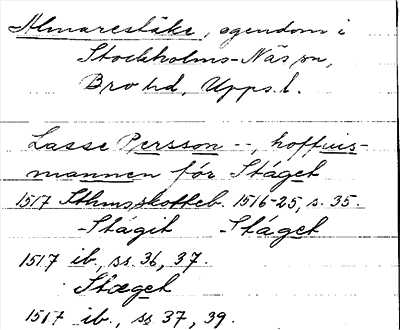 Almarestäke, egendom i
Stockholms-Näs sn,
Bro hd, Upps. l.
Lasse Persson --, hoffuis-
mannen för Stäget
1517 Sthmsskotteb. 1516-25, s. 35.
- Stägit - Stäget
1517 ib., ss. 36, 37.
Stæget
1517 ib., ss 37, 39.